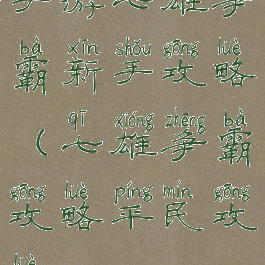 手游七雄争
bà xīn shǒu gōng lüè
霸新手攻略
qī xióng zhēng bà
（七雄争霸
gōng lüè píng mín gōng
攻略平民攻
lüè